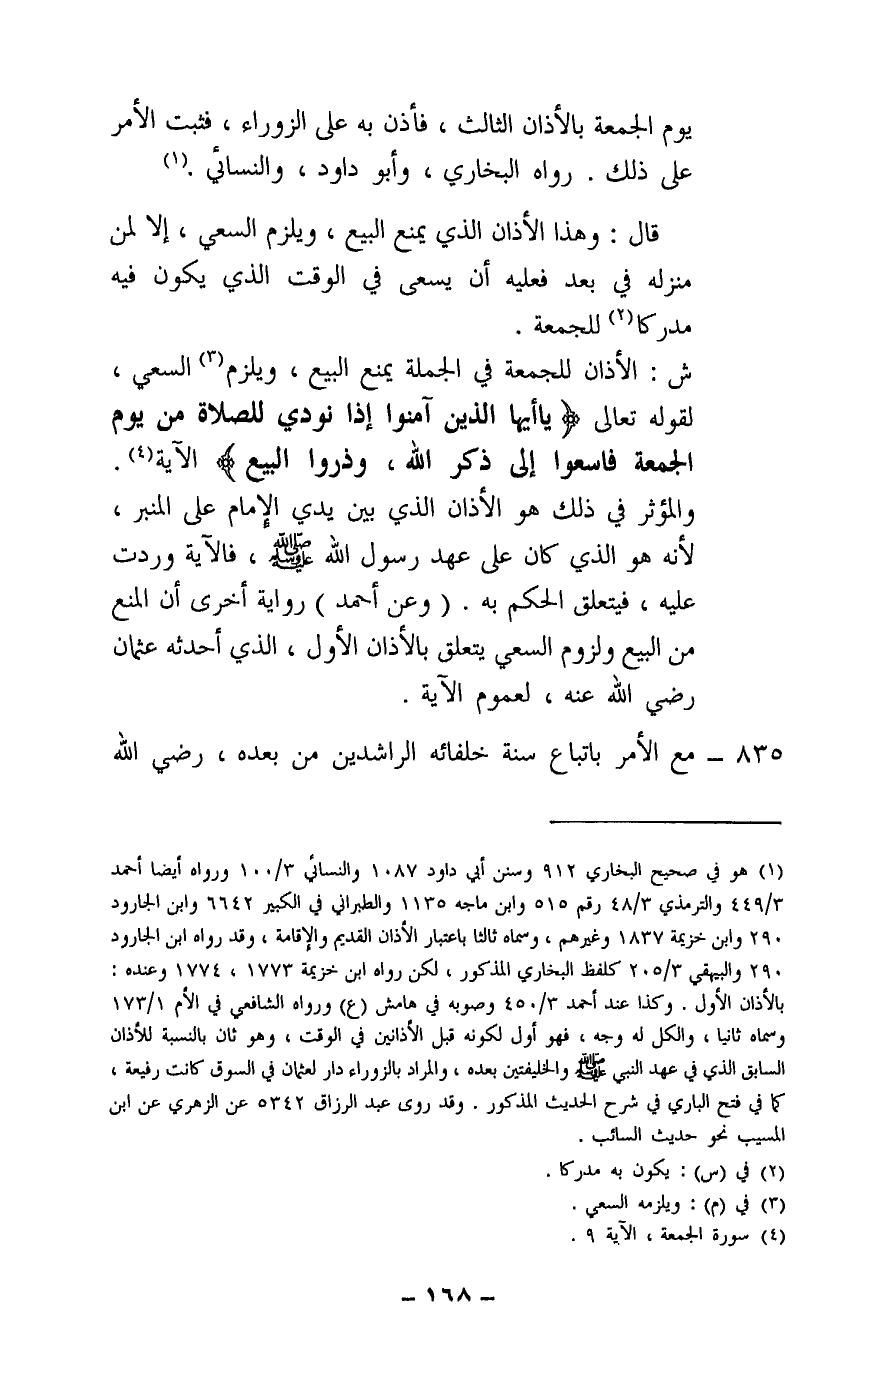 يوم الجمعة بالأذان الثالث ، فأذن به على الزوراء ، فثبت الأمر
على ذلك . رواه البخاري ، وأبو داود ، والنسائي .(١)
قال : وهذا الأذان الذي يمنع البيع ، ويلزم السعي ، إلا لمن
منزله في بعد فعليه أن يسعى في الوقت الذي يكون فيه
مدركا(٢) للجمعة .
ش : الأذان للجمعة في الجملة يمنع البيع ، ويلزم(٣) السعي ،
لقوله تعالى ﴿ ياأيها الذين آمنوا إذا نودي للصلاة من يوم
الجمعة فاسعوا إلى ذكر الله ، وذروا البيع ﴾ الآية(٤) .
والمؤثر في ذلك هو الأذان الذي بين يدي الإمام على المنبر ،
لأنه هو الذي كان على عهد رسول الله ﷺ ، فالآية وردت
عليه ، فيتعلق الحكم به . ( وعن أحمد ) رواية أخرى أن المنع
من البيع ولزوم السعي يتعلق بالأذان الأول ، الذي أحدثه عثمان
رضي الله عنه ، لعموم الآية .
٨٣٥ – مع الأمر باتباع سنة خلفائه الراشدين من بعده ، رضي الله
(١) هو في صحيح البخاري ٩١٢ وسنن أبي داود ١٠٨٧ والنسائي ١٠٠/٣ ورواه أيضا أحمد
٤٤٩/٣ والترمذي ٤٨/٣ رقم ٥١٥ وابن ماجه ١١٣٥ والطبراني في الكبير ٦٦٤٢ وابن الجارود
٢٩٠ وابن خزيمة ١٨٣٧ وغيرهم ، وسماه ثالثا باعتبار الأذان القديم والإقامة ، وقد رواه ابن الجارود
٢٩٠ والبيهقي ٢٠٥/٣ كلفظ البخاري المذكور ، لكن رواه ابن خزيمة ١٧٧٣ ، ١٧٧٤ وعنده :
بالأذان الأول . وكذا عند أحمد ٤٥٠/٣ وصوبه في هامش (ع) ورواه الشافعي في الأم ١٧٣/١
وسماه ثانيا ، والكل له وجه ، فهو أول لكونه قبل الأذانين في الوقت ، وهو ثان بالنسبة للأذان
السابق الذي في عهد النبي ﷺ والخليفتين بعده ، والمراد بالزوراء دار لعثمان في السوق كانت رفيعة ،
كما في فتح الباري في شرح الحديث المذكور . وقد روى عبد الرزاق ٥٣٤٢ عن الزهري عن ابن
المسيب نحو حديث السائب .
(٢) في (س) : يكون به مدركا .
(٣) في (م) : ويلزمه السعي .
(٤) سورة الجمعة ، الآية ٩ .
– ١٦٨ –